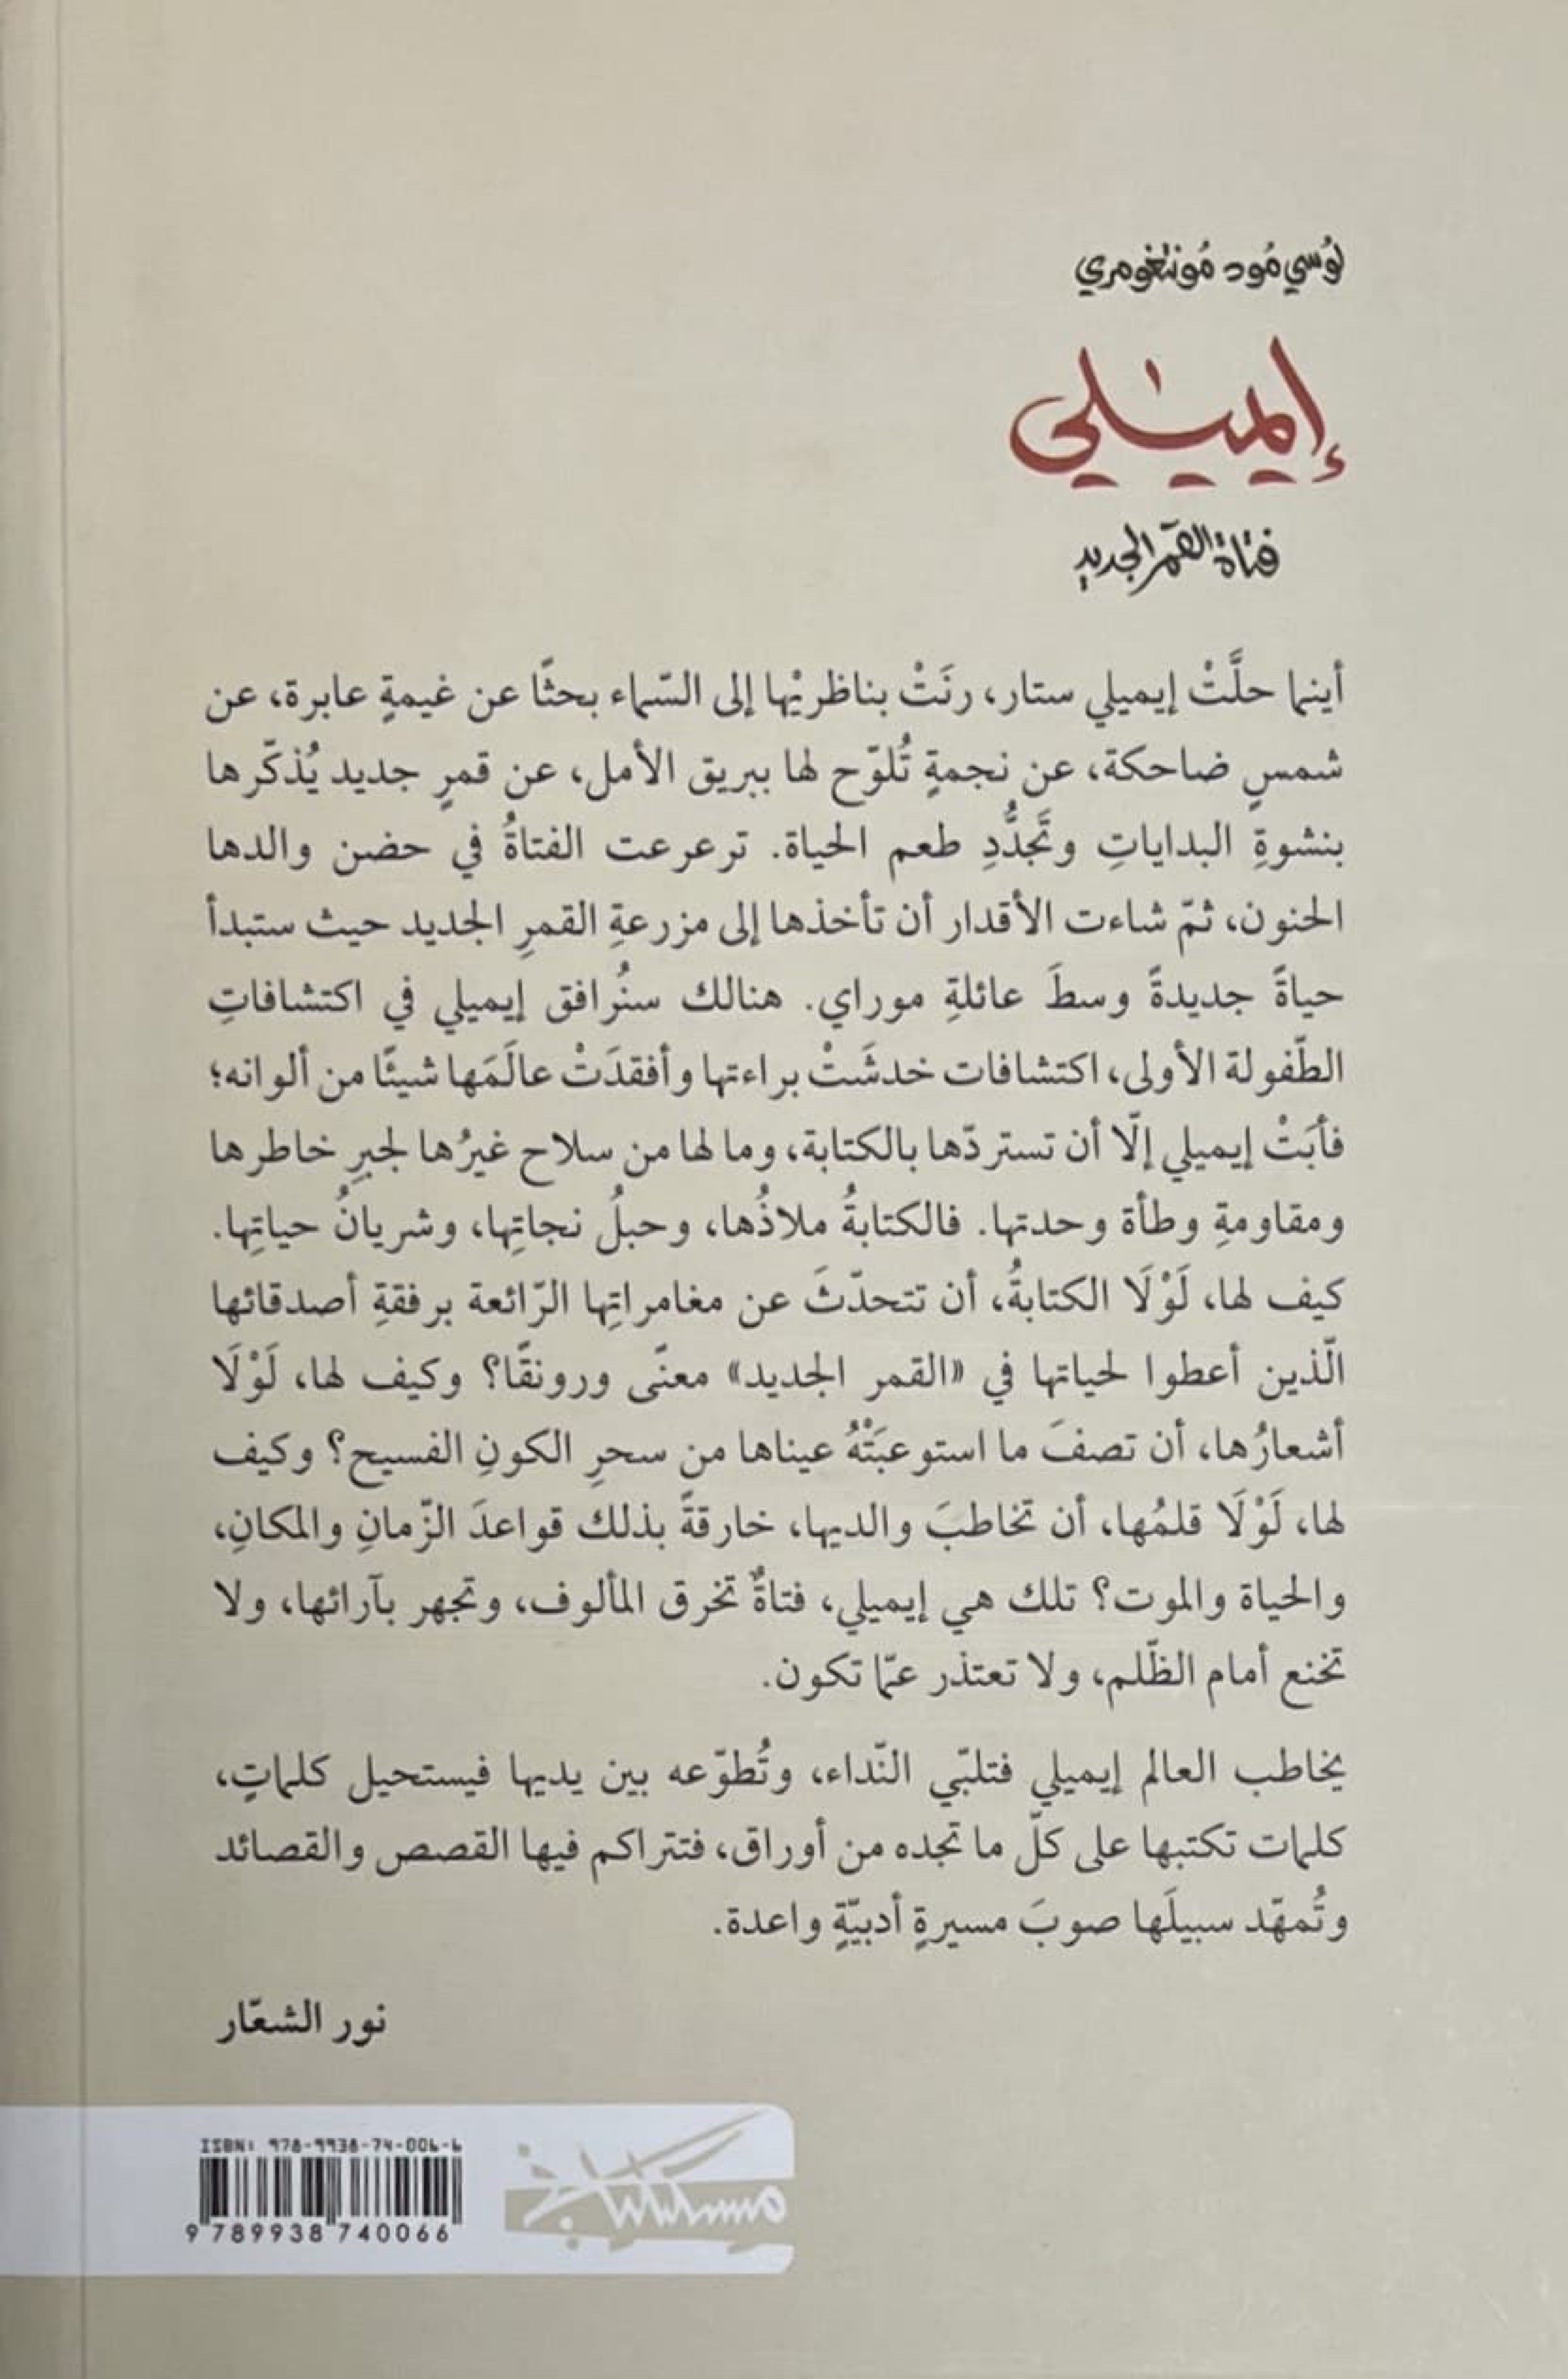 لُوسي مُود مُونتغومري
إيميلي
فتاة القمر الجديد
أينما حلَّتْ إيميلي ستار، رنَتْ بناظريْها إلى السّماء بحثًا عن غيمةٍ عابرة، عن
شمسٍ ضاحكة، عن نجمةٍ تُلوّح لها ببريق الأمل، عن قمرٍ جديد يُذكّرها
بنشوةِ البداياتِ وتَجدُّدِ طعم الحياة. ترعرعت الفتاةُ في حضن والدها
الحنون، ثمّ شاءت الأقدار أن تأخذها إلى مزرعةِ القمرِ الجديد حيث ستبدأ
حياةً جديدةً وسطَ عائلةِ موراي. هنالك سنُرافق إيميلي في اكتشافاتِ
الطّفولة الأولى، اكتشافات خدشَتْ براءتها وأفقدَتْ عالَمَها شيئًا من ألوانه؛
فأبَتْ إيميلي إلّا أن تستردّها بالكتابة، وما لها من سلاح غيرُها لجبرِ خاطرها
ومقاومةِ وطأة وحدتها. فالكتابةُ ملاذُها، وحبلُ نجاتِها، وشريانُ حياتِها.
كيف لها، لَوْلَا الكتابةُ، أن تتحدّثَ عن مغامراتِها الرّائعة برفقةِ أصدقائها
الّذين أعطوا لحياتها في «القمر الجديد» معنًى ورونقًا؟ وكيف لها، لَوْلَا
أشعارُها، أن تصفَ ما استوعبَتْهُ عيناها من سحرِ الكونِ الفسيح؟ وكيف
لها، لَوْلَا قلمُها، أن تخاطبَ والديها، خارقةً بذلك قواعدَ الزّمانِ والمكانِ،
والحياة والموت؟ تلك هي إيميلي، فتاةٌ تخرق المألوف، وتجهر بآرائها، ولا
تخنع أمام الظّلم، ولا تعتذر عمّا تكون.
يخاطب العالم إيميلي فتلبّي النّداء، وتُطوّعه بين يديها فيستحيل كلماتٍ،
كلمات تكتبها على كلّ ما تجده من أوراق، فتتراكم فيها القصص والقصائد
وتُمهّد سبيلَها صوبَ مسيرةٍ أدبيّةٍ واعدة.
نور الشعّار
ISBN: 978-9938-74-006-6
9 789938 740066
مسكيلياني